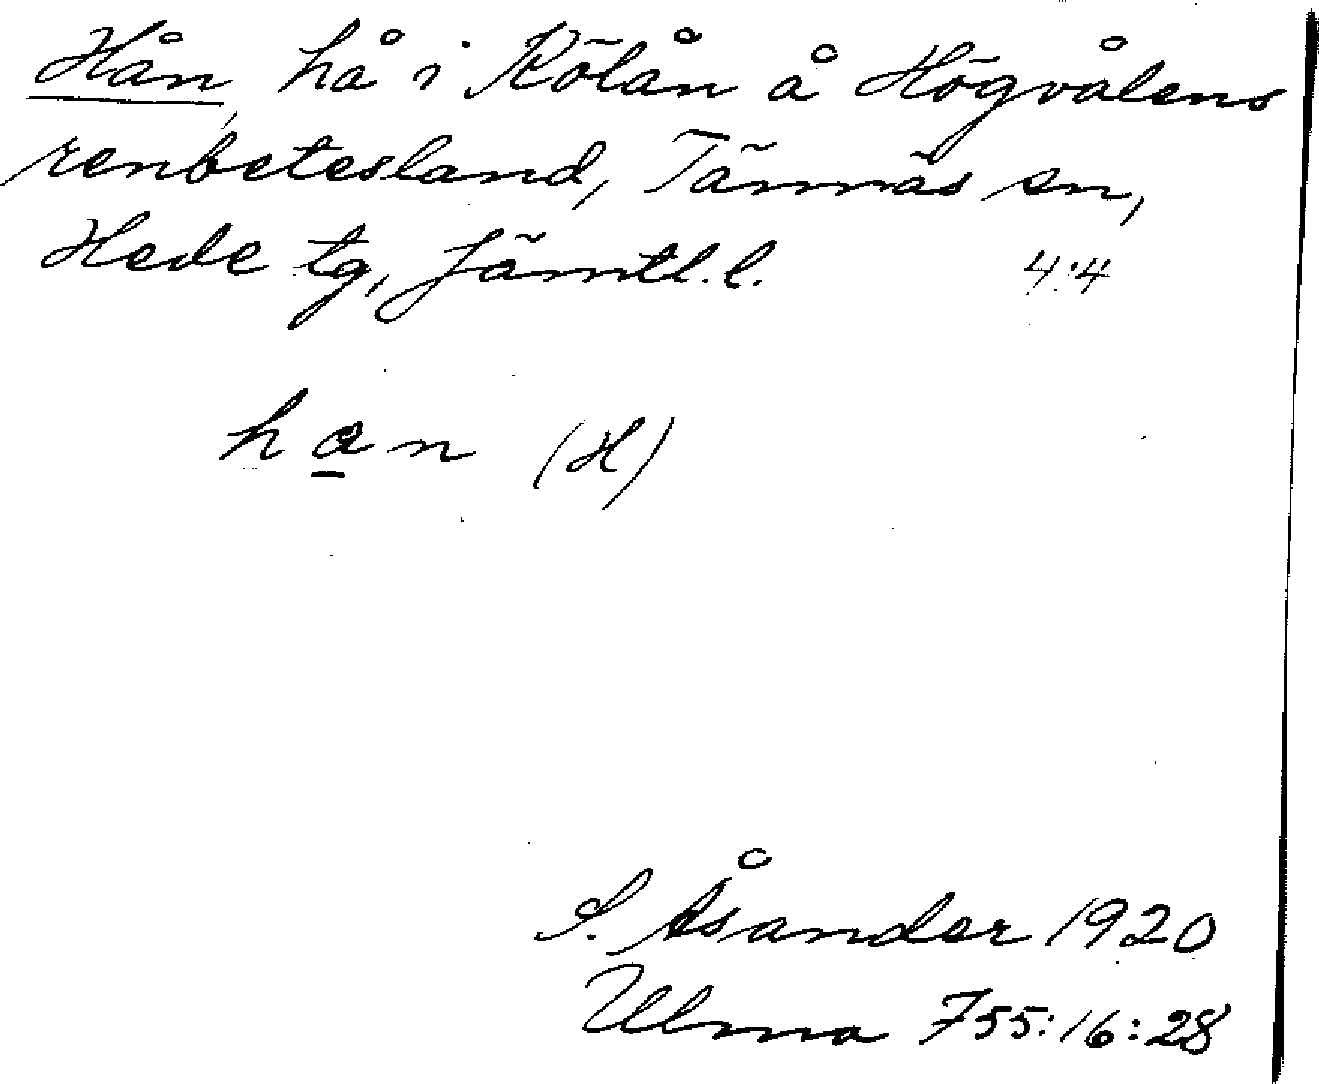 Hån, hå i Kölån å Högvålens
renbetesland, Tännäs sn,
Hede tg, Jämtl.l. 4:4
han (H)
S. Åsander 1920
Ulma 755:16:28